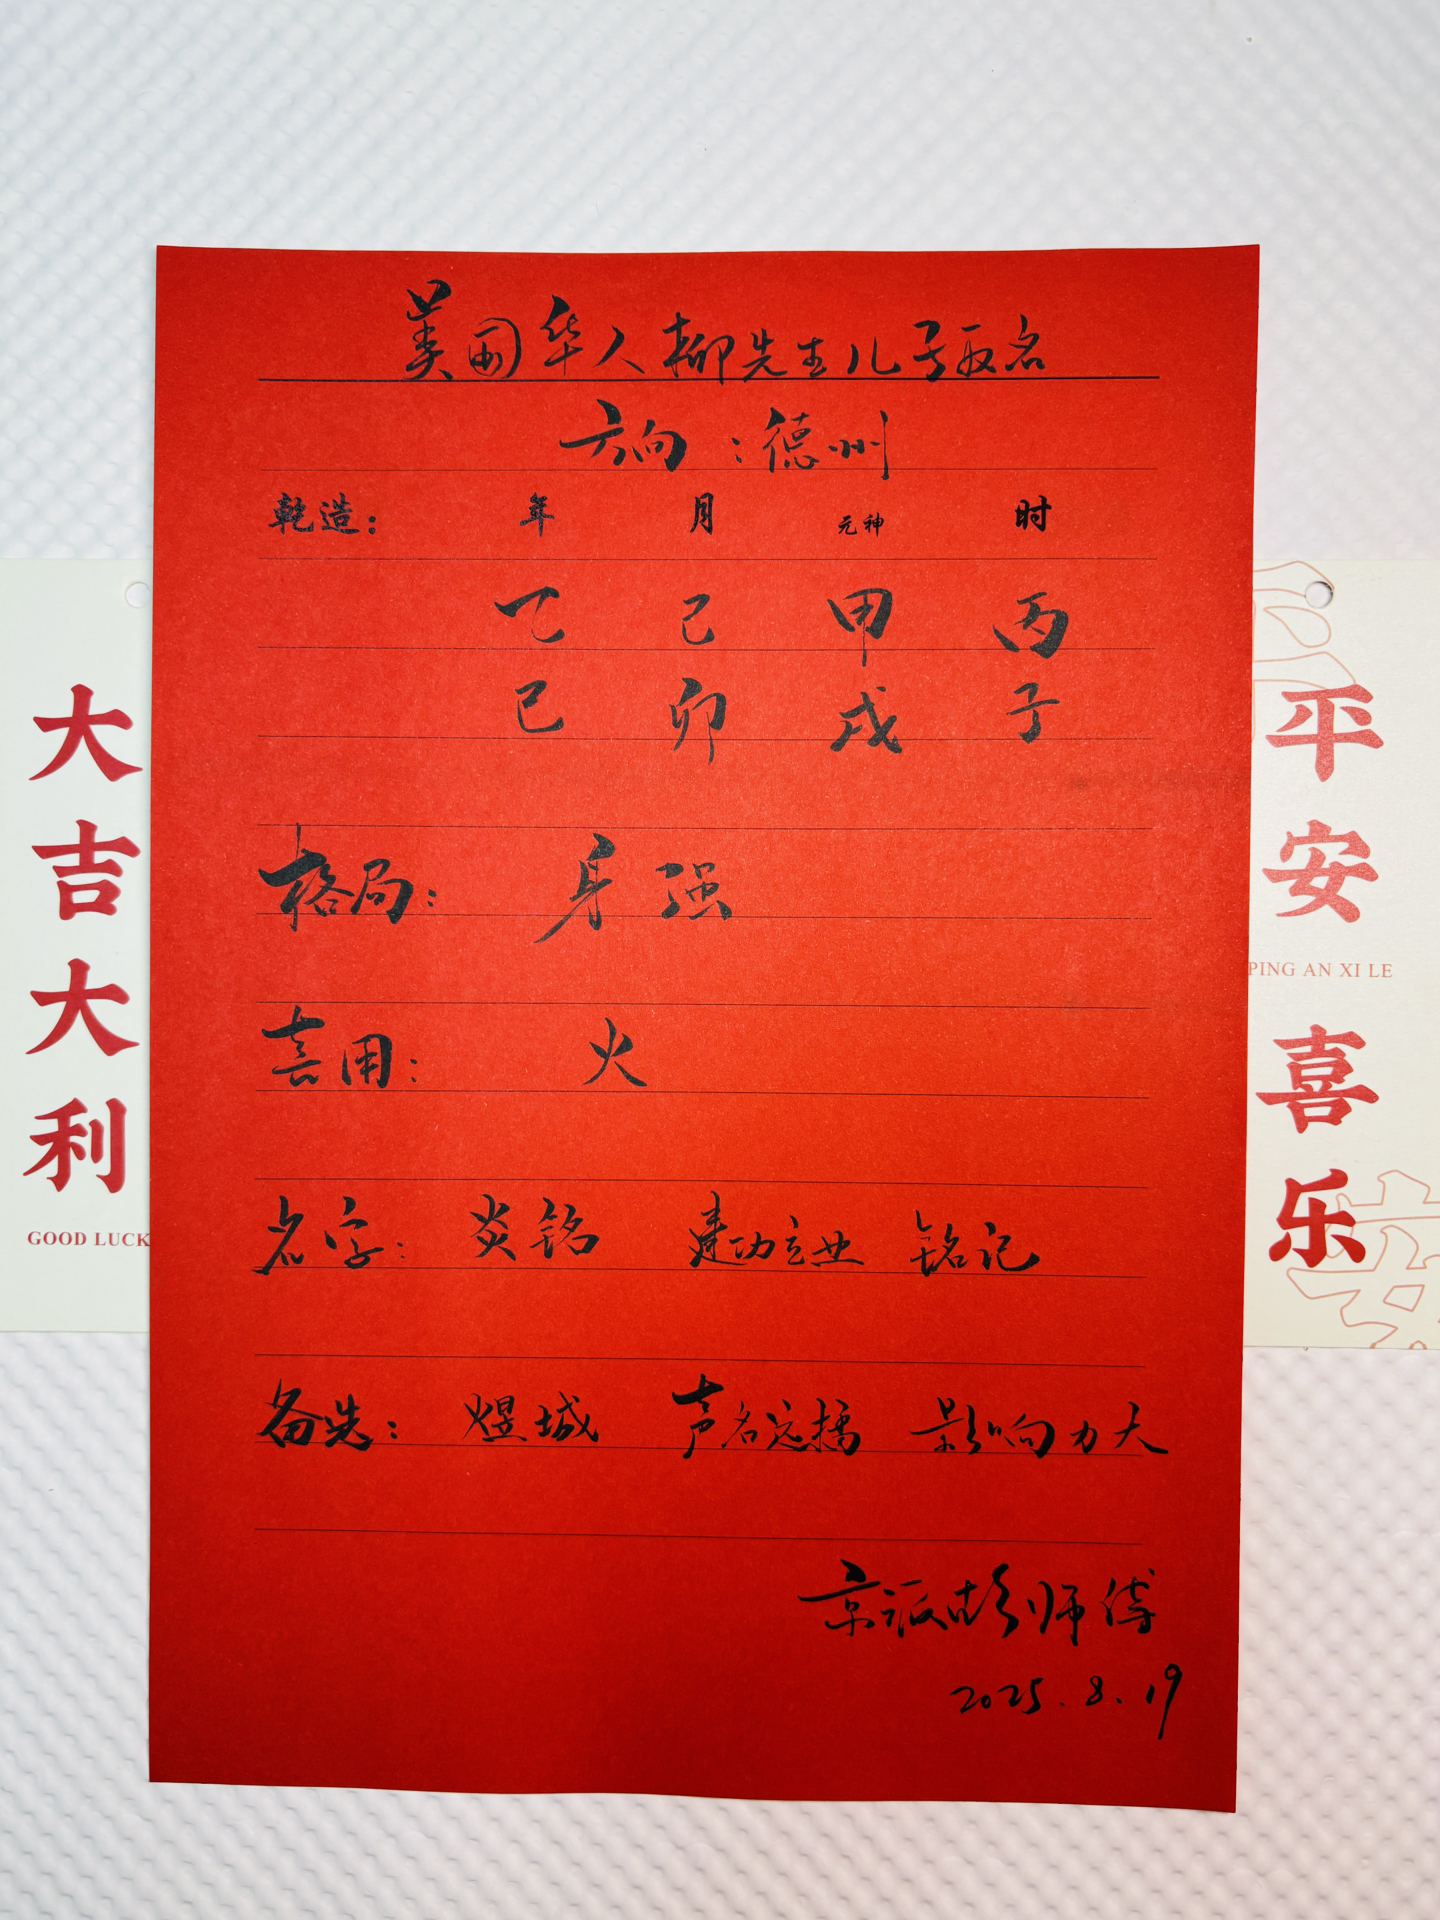 美国华人柳先生儿子取名
方向：德州
乾造： 年 月 元神 时
乙 己 甲 丙
巳 卯 戌 子
格局： 身强
喜用： 火
名字： 炎铭 建功立业 铭记
备选： 煜城 声名远播 影响力大
京派彭师傅
2025.8.19
大吉大利
GOOD LUCK
平安
PING AN XI LE
喜乐